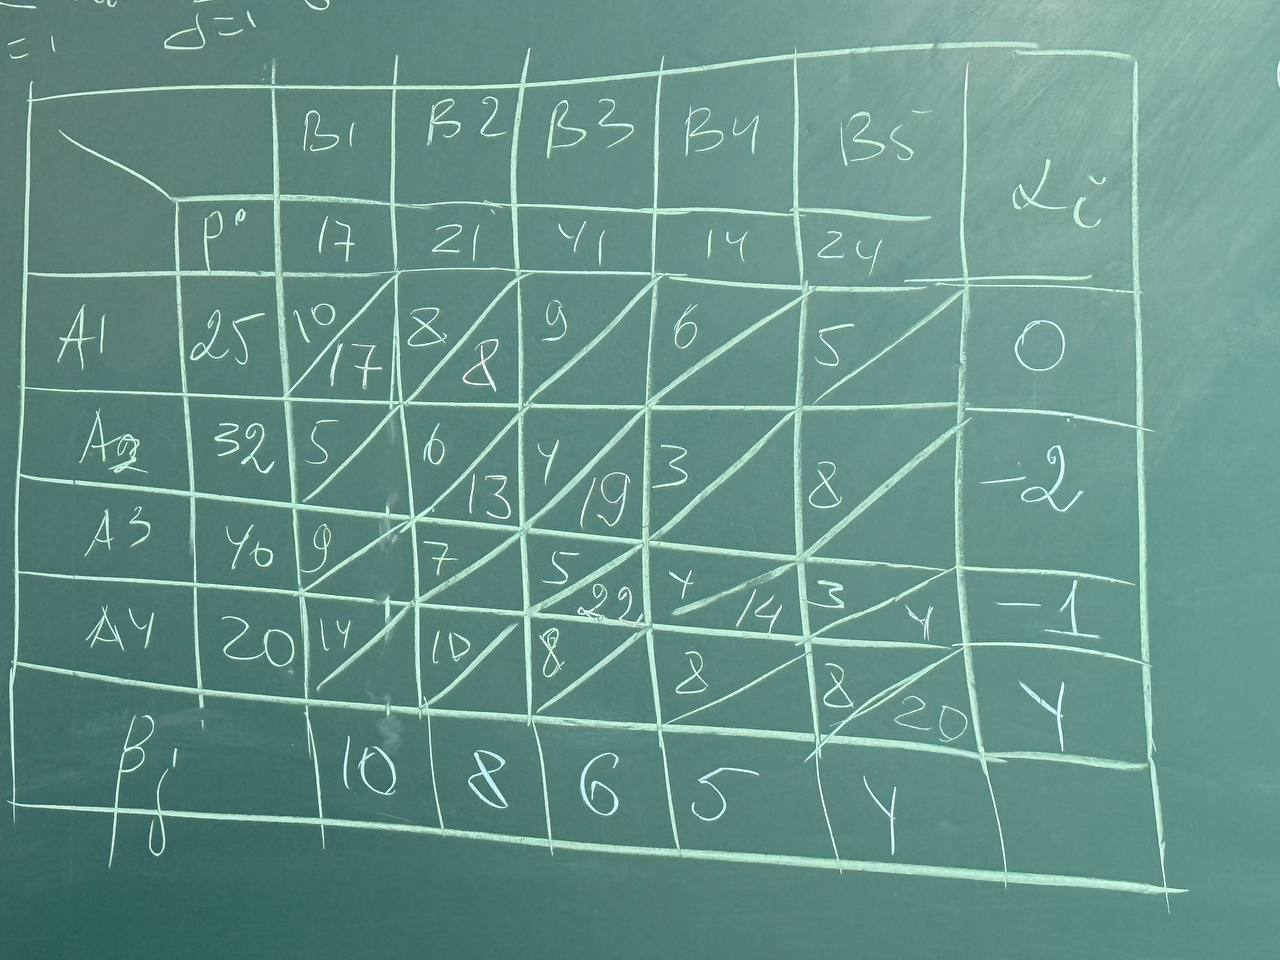 =1 j=1
B1 B2 B3 B4 B5 αi
P° 17 21 41 14 24
A1 25 10 17 8 8 9 6 5 0
A2 32 5 6 13 4 19 3 8 -2
A3 40 9 7 5 22 4 14 3 4 -1
A4 20 14 10 8 8 8 20 4
βj 10 8 6 5 4